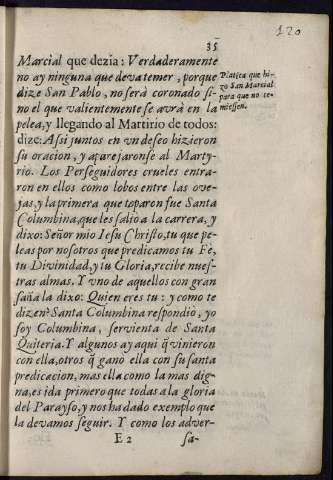 120
35
Marcial que dezia: Verdaderamente
no ay ninguna que deva temer, porque
dize San Pablo, no serà coronado si-
no el que valientemente se avrà en la
pelea, y llegando al Martirio de todos:
dize: Assi juntos en vn deseo hizieron
su oracion, y aparejaronse al Marty-
rio. Los Perseguidores crueles entra-
ron en ellos como lobos entre las ove-
jas, y la primera que toparon fue Santa
Columbina, que les salio a la carrera, y
dixo: Señor mio Iesu Christo, tu que pe-
leas por nosotros que predicamos tu Fè,
tu Divinidad, y tu Gloria, recibe nues-
tras almas. Y vno de aquellos con gran
saña la dixo: Quien eres tu: y como te
dizen? Santa Columbina respondiò, yo
soy Columbina, servienta de Santa
Quiteria. Y algunos ay aqui q̃ vinieron
con ella, otros q̃ ganò ella con su santa
predicacion, mas ella como la mas dig-
na, es ida primero que todas a la gloria
del Parayso, y nos ha dado exemplo que
la devamos seguir. Y como los adver-
E 2 sa-
Platica que hi-
zo San Marcial
para que no te-
miessen.